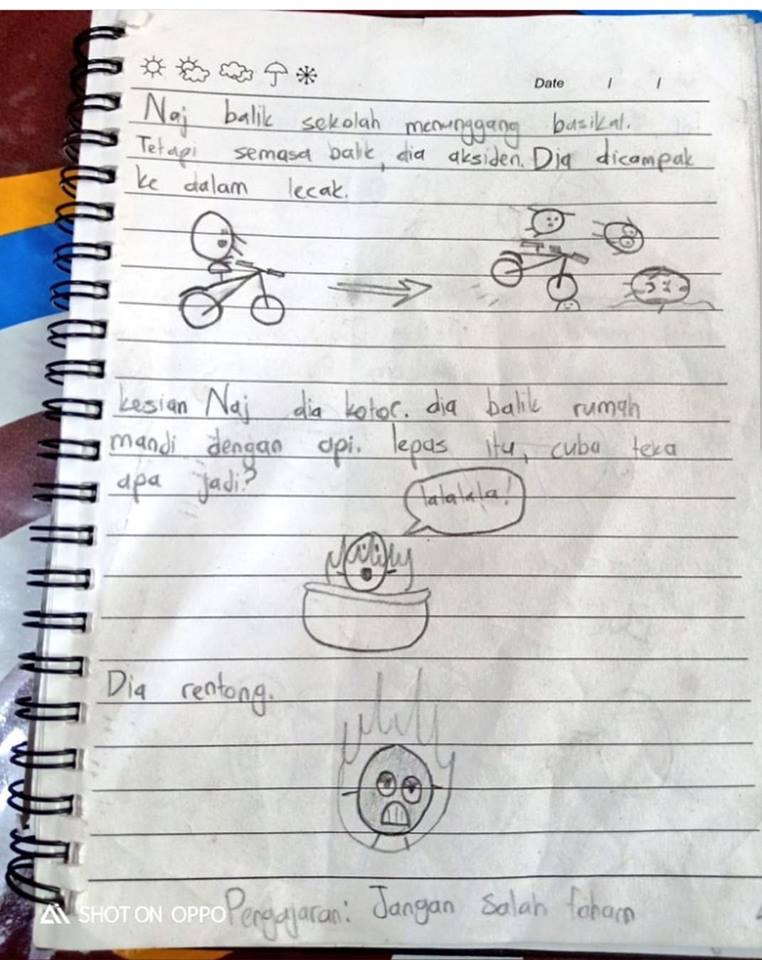 Date / /
Naj balik sekolah menunggang basikal.
Tetapi semasa balik, dia aksiden. Dia dicampak
ke dalam lecak.
kesian Naj dia kotor. dia balik rumah
mandi dengan api. lepas itu, cuba teka
apa jadi?
lalalala!
Dia rentong.
Pengajaran: Jangan salah faham
SHOT ON OPPO